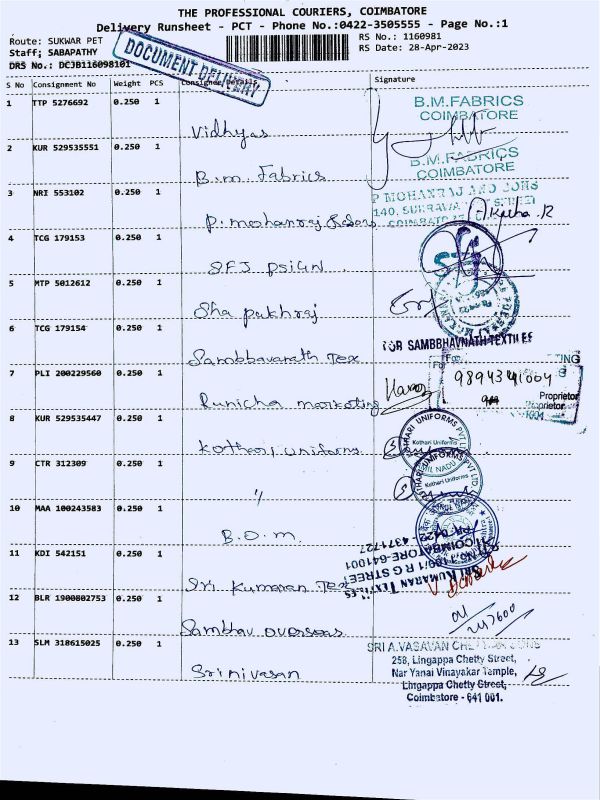 THE PROFESSIONAL COURIERS, COIMBATORE
Delivery Runsheet - PCT - Phone No.:0422-3505555 - Page No.:1
Route: SUKWAR PET
Staff; SABAPATHY
DRS No.: DCJB116098101
DOCUMENT DELIVERY
RS No.: 1160981
RS Date: 28-Apr-2023
S No Consignment No Weight PCS Consignee Details Signature
1 TTP 5276692 0.250 1
Vidhyas
B.M.FABRICS
COIMBATORE
2 KUR 529535551 0.250 1
B.m. Fabrics
B.M.FABRICS
COIMBATORE
3 NRI 553102 0.250 1
P. mohanraj &sons
P MOHANRAJ AND SONS
4 TCG 179153 0.250 1
SFJ
5 MTP 5012612 0.250 1
Sha pukhraj
6 TCG 179154 0.250 1
Sambbavanath Tex
FOR SAMBBHAVNATH TEXTILES
7 PLI 200229560 0.250 1
Runicha marketing
9894341004
Proprietor
Proprietor
8 KUR 529535447 0.250 1
Kothari uniforms
KOTHARI UNIFORMS PVT LTD
Kothari Uniforms
9 CTR 312309 0.250 1
"
KOTHARI UNIFORMS PVT LTD
TAMIL NADU
Kothari Uniforms
10 MAA 100243583 0.250 1
B.O.M
11 KDI 542151 0.250 1
Sri Kumaran Tex
SRI KUMARAN TEXTILES
R G STREET
COIMBATORE-641001
PH: 0422 - 4371727
12 BLR 1900802753 0.250 1
Sambhav overseas
13 SLM 318615025 0.250 1
Srinivasan
SRI A.VASAVAN CHETTIAR SONS
258, Lingappa Chetty Street,
Nar Yanai Vinayakar Temple,
Lingappa Chetty Street,
Coimbatore - 641 001.